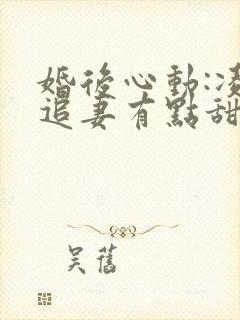 婚後心動:凌
追妻有點甜
吳舊